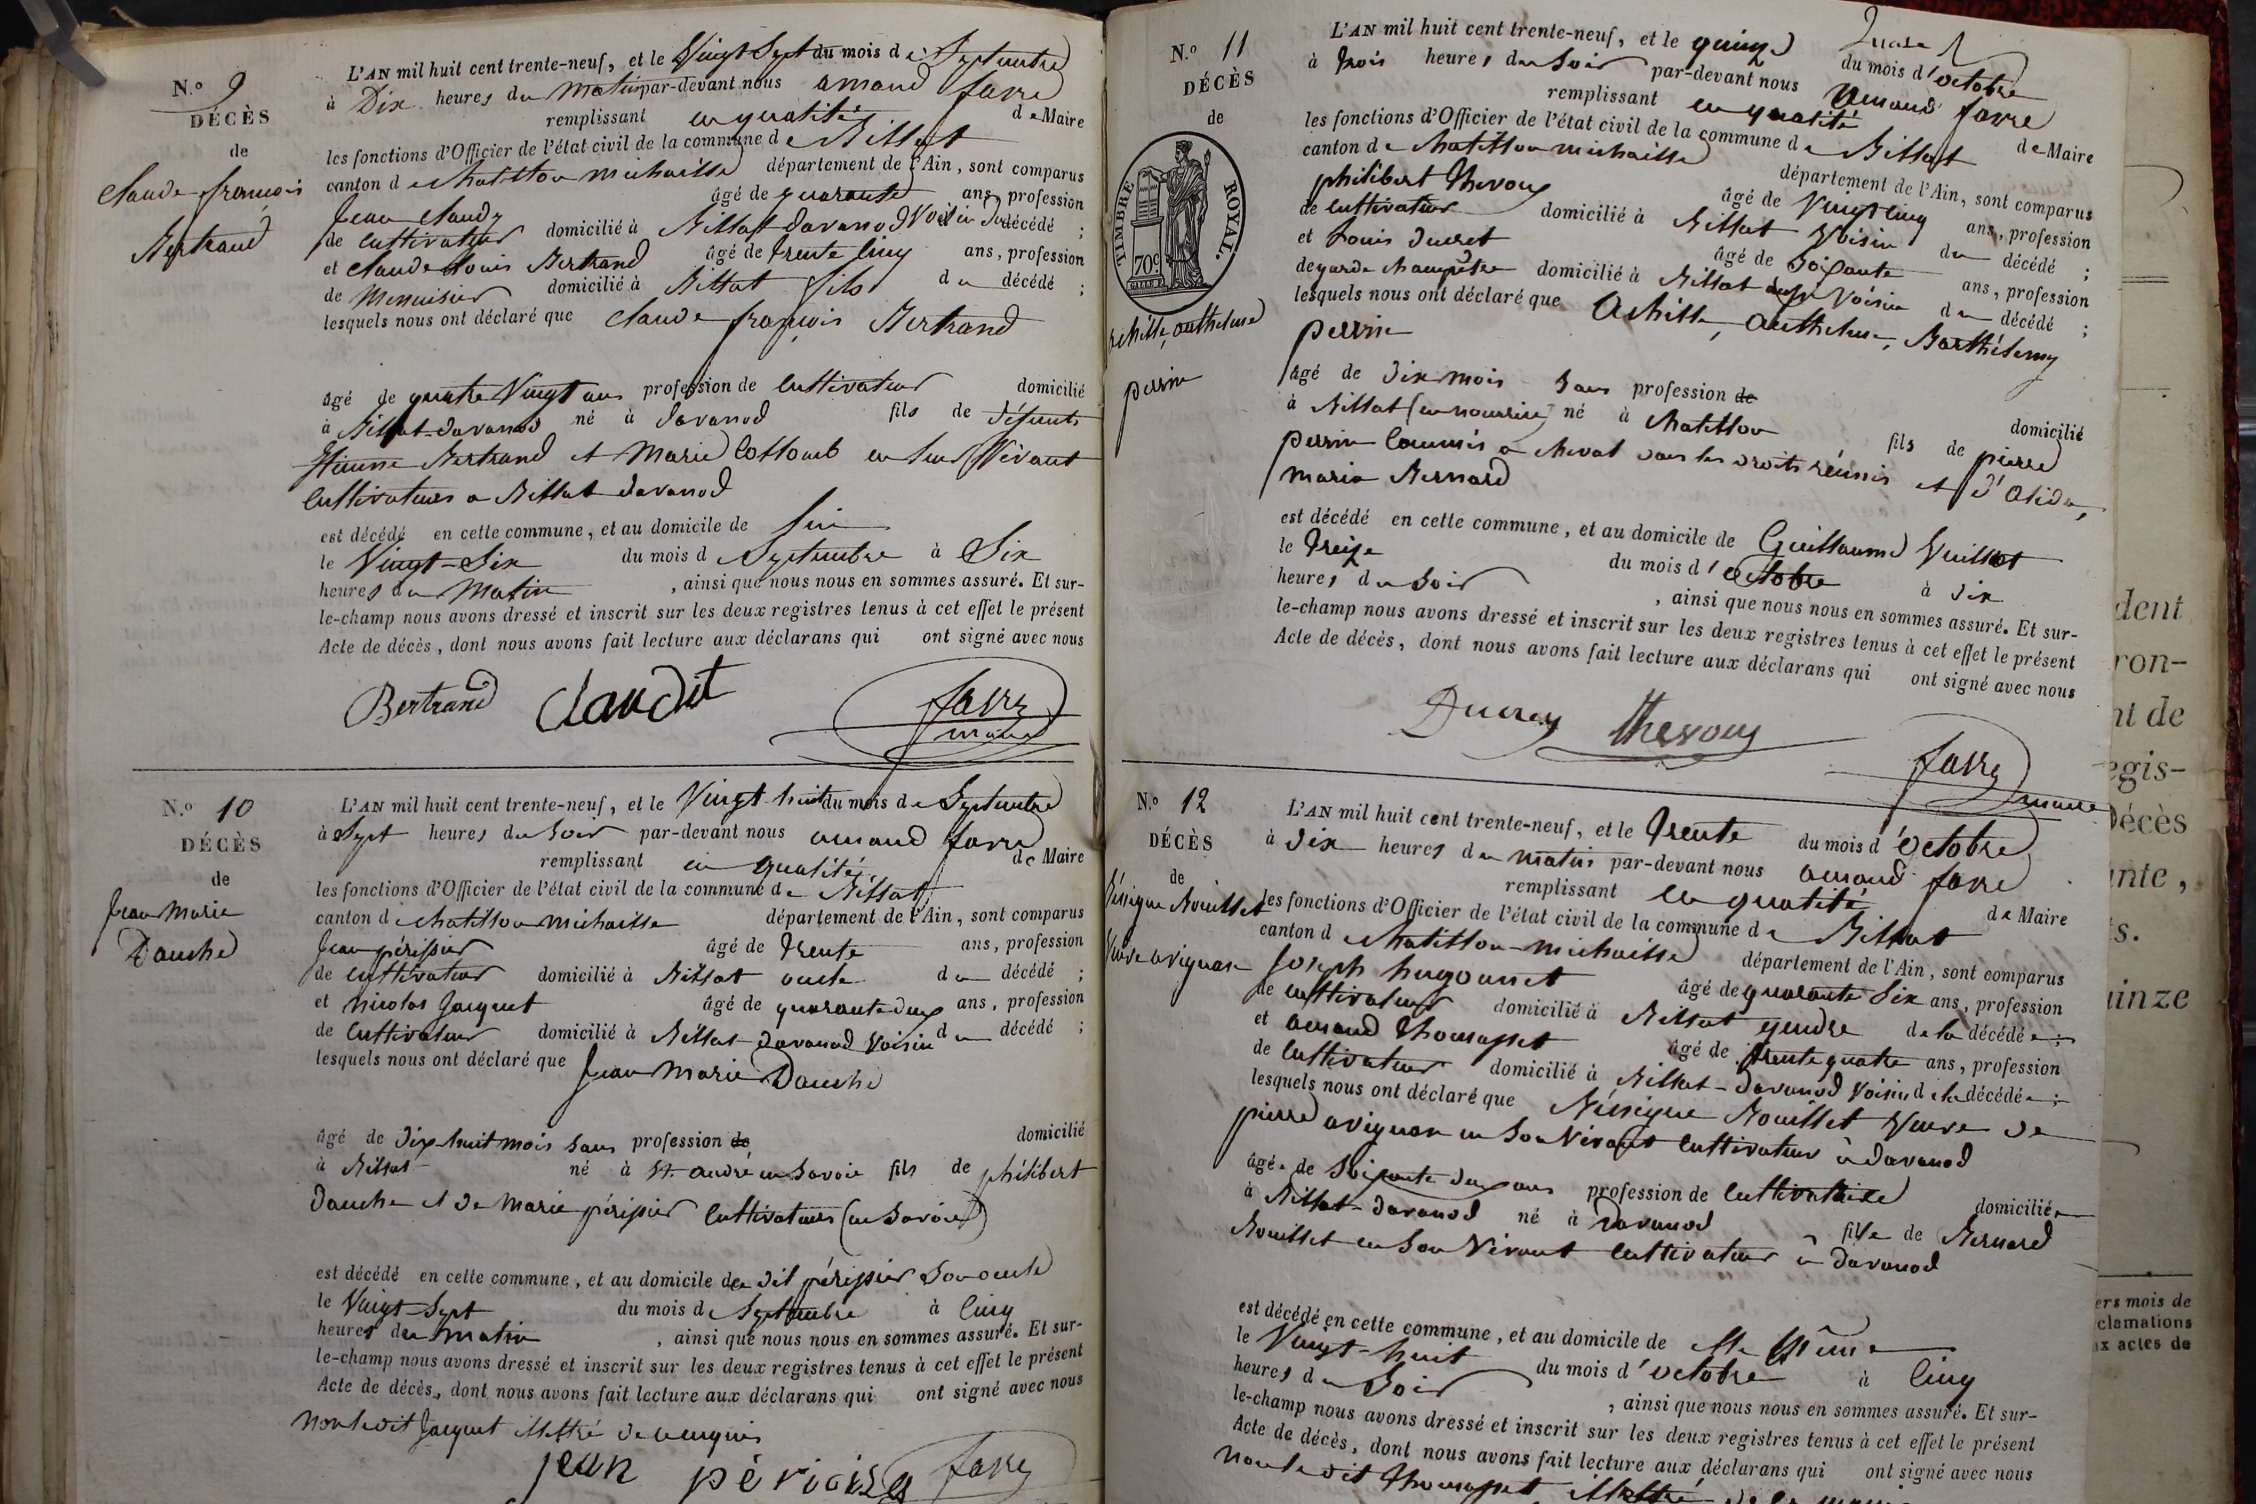 N.o 9
DÉCÈS
de
Claude françois
Bertrand
L'AN mil huit cent trente-neuf, et le Vingt Sept du mois de Septembre
à Dix heures du matin par-devant nous amand favre
remplissant en qualité de Maire
les fonctions d'Officier de l'état civil de la commune de Billiat
canton de Chatillon michaille département de l'Ain, sont comparus
Jean Claudy âgé de quarante ans, profession
de Cultivateur domicilié à Billiat davanod Voisin du décédé ;
et Claude Louis Bertrand âgé de trente cinq ans, profession
de Menuisier domicilié à Billiat fils du décédé ;
lesquels nous ont déclaré que Claude françois Bertrand
âgé de quatre Vingt ans profession de Cultivateur domicilié
à Billiat-davanod né à davanod fils de défunts
Etienne Bertrand et Marie Collomb en leur Vivant
Cultivateurs a Billiat davanod
est décédé en cette commune, et au domicile de sien
le Vingt-Six du mois de Septembre à Six
heures du Matin , ainsi que nous nous en sommes assuré. Et sur-
le-champ nous avons dressé et inscrit sur les deux registres tenus à cet effet le présent
Acte de décès, dont nous avons fait lecture aux déclarans qui ont signé avec nous
Bertrand Claudit favre
maire
N.o 10
DÉCÈS
de
Jean Marie
Dauche
L'AN mil huit cent trente-neuf, et le Vingt-huit du mois de Septembre
à Sept heures du Soir par-devant nous amand favre
remplissant en qualité de Maire
les fonctions d'Officier de l'état civil de la commune de Billiat
canton de Chatillon michaille département de l'Ain, sont comparus
Jean périssier âgé de trente ans, profession
de Cultivateur domicilié à Billiat oncle du décédé ;
et nicolas Jacquet âgé de quarante deux ans, profession
de Cultivateur domicilié à Billiat davanod Voisin du décédé ;
lesquels nous ont déclaré que Jean Marie Dauche
âgé de dix huit mois sans profession de domicilié
à Billiat né à St. andré en Savoie fils de philibert
Dauche et de Marie périssier Cultivateurs (en Savoie)
est décédé en cette commune, et au domicile de du dit périssier son oncle
le Vingt-Sept du mois de Septembre à Cinq
heures du matin , ainsi que nous nous en sommes assuré. Et sur-
le-champ nous avons dressé et inscrit sur les deux registres tenus à cet effet le présent
Acte de décès, dont nous avons fait lecture aux déclarans qui ont signé avec nous
non le dit Jacquet illettré de ce enquis
jean favre
N.o 11
DÉCÈS
de
TIMBRE ROYAL.
70c
achille, anthelme
perrin
L'AN mil huit cent trente-neuf, et le quinze du mois d'octobre
à trois heures du Soir par-devant nous amand favre
remplissant en qualité de Maire
les fonctions d'Officier de l'état civil de la commune de Billiat
canton de Chatillon michaille département de l'Ain, sont comparus
philibert Thevoux âgé de Vingt cinq ans, profession
de cultivateur domicilié à Billiat Voisin du décédé ;
et Louis Ducret âgé de Soixante ans, profession
de garde champêtre domicilié à Billiat Voisin du décédé ;
lesquels nous ont déclaré que Achille, anthelme, Barthélemy
perrin
âgé de Dix mois sans profession de domicilié
à Billiat (en nourrice) né à Chatillon fils de pierre
perrin Commis a cheval dans les droits réunis et d'Olida,
maria Bernard
est décédé en cette commune, et au domicile de Guillaume Vuillat
le treize du mois d'octobre à dix
heures du Soir , ainsi que nous nous en sommes assuré. Et sur-
le-champ nous avons dressé et inscrit sur les deux registres tenus à cet effet le présent
Acte de décès, dont nous avons fait lecture aux déclarans qui ont signé avec nous
Ducrey Thevoux favre
maire
N.o 12
DÉCÈS
de
Bouillet
Veuve avignon
L'AN mil huit cent trente-neuf, et le trente du mois d'octobre
à dix heures du matin par-devant nous amand favre
remplissant en qualité de Maire
les fonctions d'Officier de l'état civil de la commune de Billiat
canton de Chatillon-michaille département de l'Ain, sont comparus
Joseph hugonnet âgé de quarante Six ans, profession
de cultivateur domicilié à Billiat gendre de la décédée ;
et amand Thomasset âgé de trente quatre ans, profession
de Cultivateur domicilié à Billiat-davanod Voisin de la décédée ;
lesquels nous ont déclaré que Bouillet Veuve de
pierre avignon en son Vivant Cultivateur à davanod
âgée de Soixante deux ans profession de Cultivatrice domiciliée
à Billiat-davanod né à Davanod fille de Bernard
Bouillet en Son Vivant Cultivateur à davanod
est décédé en cette commune, et au domicile de elle même
le Vingt-huit du mois d'octobre à Cinq
heures du Soir , ainsi que nous nous en sommes assuré. Et sur-
le-champ nous avons dressé et inscrit sur les deux registres tenus à cet effet le présent
Acte de décès, dont nous avons fait lecture aux déclarans qui ont signé avec nous
non le dit Thomasset illettré
dent
ron-
nt de
egis-
Décès
ante,
ts.
uinze
ers mois de
clamations
ux actes de